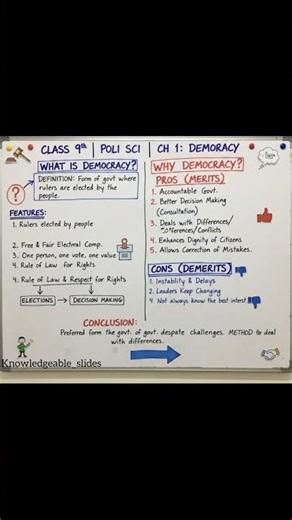 CLASS 9th | POLI SCI | CH 1: DEMORACY
WHAT IS DEMOCRACY?
DEFINITION: Form of govt where
rulers are elected by the
people.
?
FEATURES:
1. Rulers elected by people
2. Free & Fair Electral Comp.
3. One person, one vote, one value
4. Rule of Law for Rights
4. Rule of Law & Respect for Rights
ELECTIONS → DECISION MAKING
WHY DEMOCRACY?
PROS (MERITS)
1. Accountable Govt.
2. Better Decision Making
(Consultation)
3. Deals with Differences/
Differences/Conflicts
4. Enhances Dignity of Citizens
5. Allows Correction of Mistakes.
CONS (DEMERITS)
1. Instablity & Delays
2. Leaders Keep Changing
4. Not always know the best interest
CONCLUSION:
Preferred form the govt. of govt. despate challenges. METHOD to deal
with differences.
Knowledgeable_slides